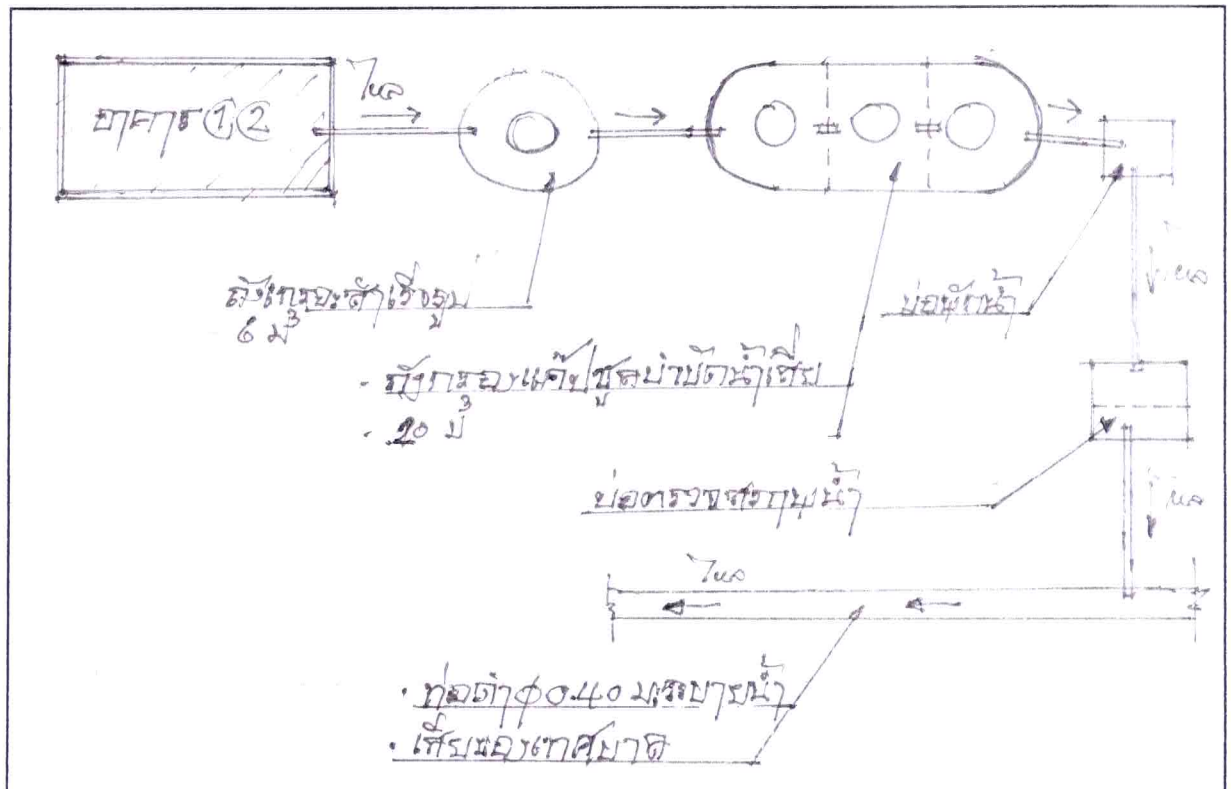 อาคาร ① ②
ไหล
ถังเกรอะสำเร็จรูป
6 ม³
ไหล
บ่อพักน้ำ
· ถังกรองแค๊ปซูลบำบัดน้ำเสีย
· 20 ม³
บ่อตรวจสภาพน้ำ
ไหล
ไหล
· ท่อ ø 0.40 ม. ระบายน้ำ
· เสียของเทศบาล